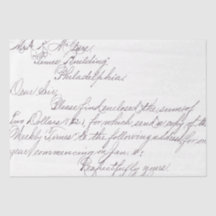 Times Building
Philadelphia
Dear Sir,
Please find enclosed the sum of
Two Dollars for which send a copy of the
Weekly Times to the following address for one
year commencing
Respectfully yours